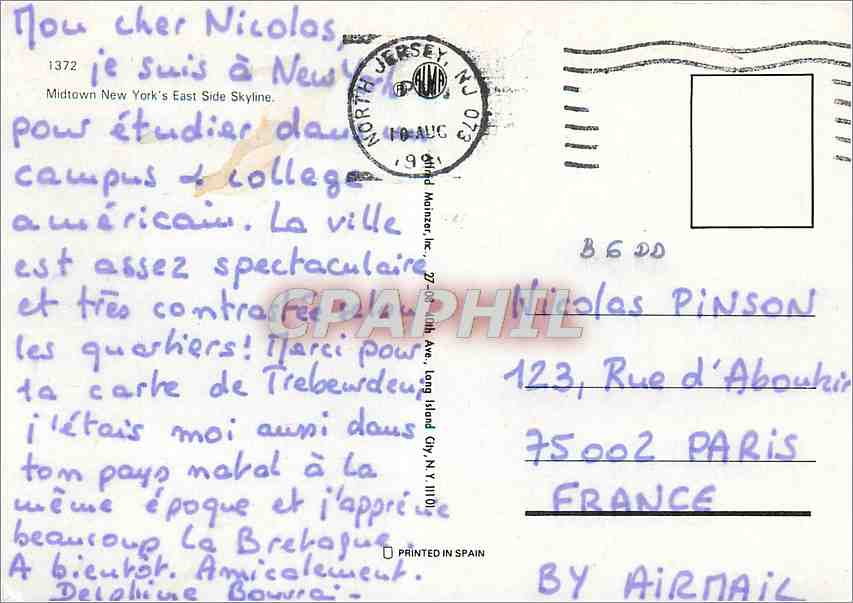 Mon cher Nicolas,
1372 je suis à New
Midtown New York's East Side Skyline.
pour étudier dans un
campus & college
américain. La ville
est assez spectaculaire
et très contrastée selon
les quartiers! Merci pour
ta carte de Trebeurden;
j'étais moi aussi dans
ton pays natal à la
même époque et j'apprécie
beaucoup la Bretagne.
A bientôt. Amicalement.
Delphine
NORTH JERSEY, NJ 073
ALMA
10 AUG
199
Alfred Mainzer, Inc., 27-08 40th Ave., Long Island City, N.Y. 11101
PRINTED IN SPAIN
CPAPHIL
B 6 DD
Nicolas PINSON
123, Rue d'Aboukir
75002 PARIS
FRANCE
BY AIRMAIL